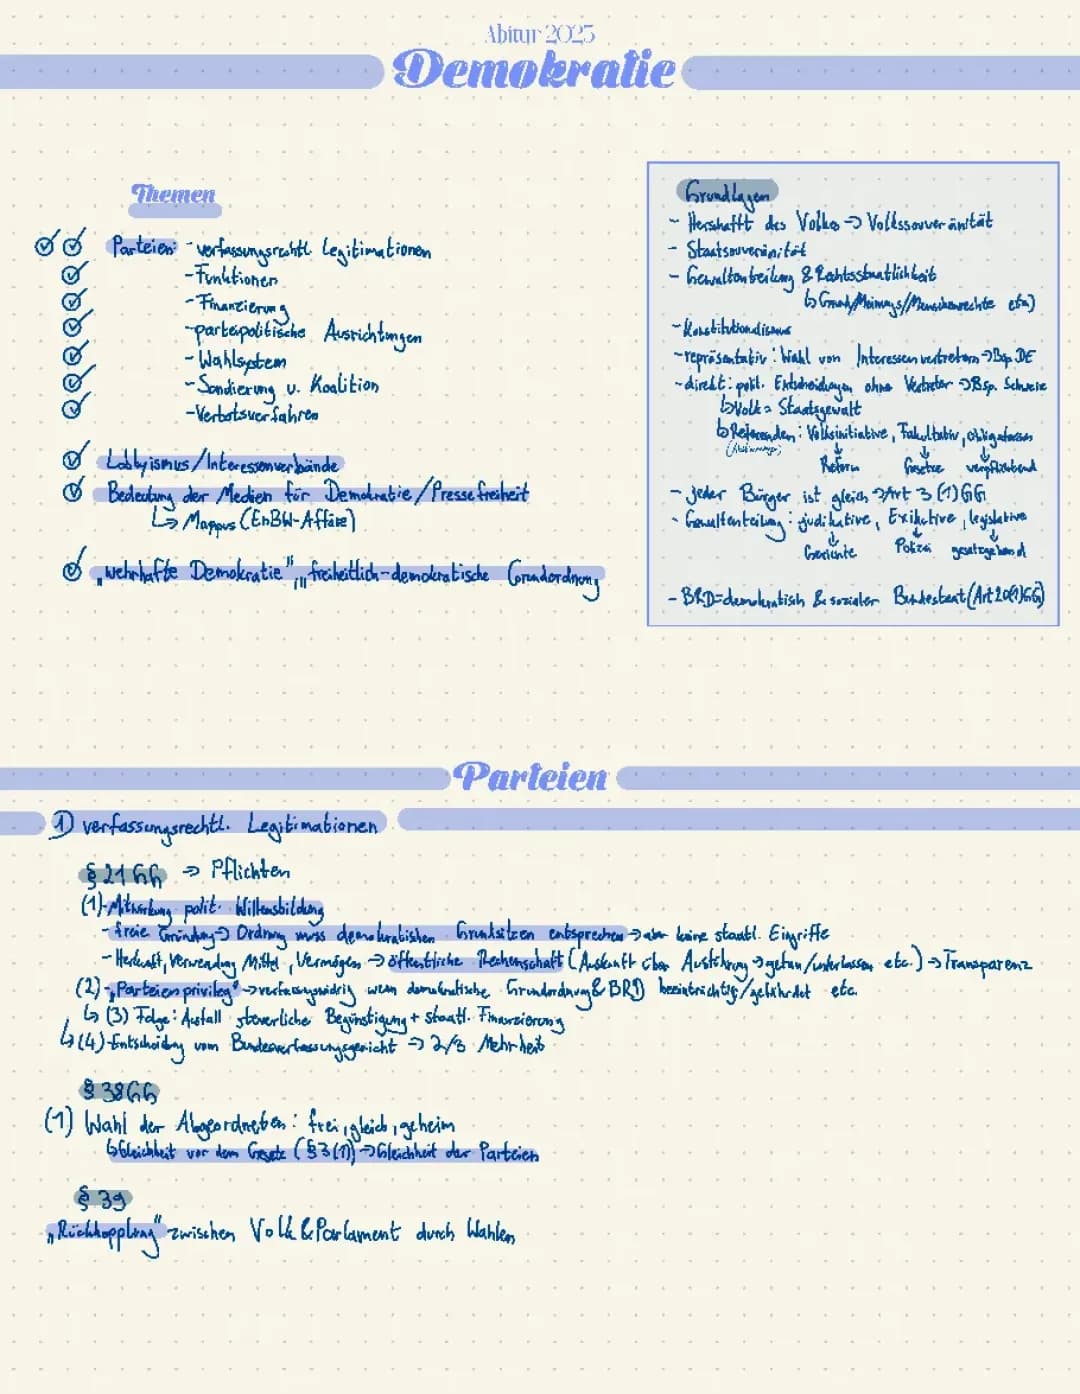 Abitur 2025
Demokratie
Themen
Parteien: - verfassungsrechtl. Legitimationen
- Funktionen
- Finanzierung
- parteipolitische Ausrichtungen
- Wahlsystem
- Sondierung u. Koalition
- Verbotsverfahren
Lobbyismus/Interessenverbände
Bedeutung der Medien für Demokratie/Pressefreiheit
↳ Mappus (EnBW-Affäre)
"wehrhafte Demokratie", "freiheitlich-demokratische Grundordnung
Grundlagen
- Herschafft des Volkes → Volkssouveränität
- Staatsouveränität
- Gewaltenteilung & Rechtsstaatlichkeit
↳ Grund/Meinungs//Menschenrechte etc)
- Konstitutionalismus
- repräsentativ: Wahl von Interessenvertretern → Bsp. DE
- direkt: polit. Entscheidungen ohne Vertreter → Bsp. Schweiz
↳ Volk = Staatsgewalt
↳ Referenden: Volksinitiative, Fakultativ, obligatorisch
(Abstimmungen)
↓ Reform ↓ Gesetze ↓ verpflichtend
- jeder Bürger ist gleich → Art 3 (1) GG
- Gewaltenteilung: judikative, Exikutive, legislative
↓ Gerichte ↓ Polizei ↓ gesetzgebend
- BRD = demokratisch & sozialer Bundesstaat (Art 20(1) GG)
Parteien
1) verfassungsrechtl. Legitimationen
§ 21 GG → Pflichten
(1) - Mitwirkung polit. Willensbildung
- freie Gründung → Ordnung muss demokratischen Grundsätzen entsprechen → aber keine staatl. Eingriffe
- Herkunft, Verwendung Mittel, Vermögen → öffentliche Rechenschaft (Auskunft über Ausführung → getan/unterlassen etc.) → Transparenz
(2) - "Parteienprivileg" → verfassungswidrig wenn demokratische Grundordnung & BRD beeinträchtigt/gefährdet etc.
↳ (3) Folge: Ausfall steuerliche Begünstigung + staatl. Finanzierung
↳ (4) - Entscheidung vom Bundesverfassungsgericht → 2/3 Mehrheit
§ 38 GG
(1) Wahl der Abgeordneten: frei, gleich, geheim
↳ Gleichheit vor dem Gesetz (§ 3 (1)) → Gleichheit der Parteien
§ 39
"Rückkopplung" zwischen Volk & Parlament durch Wahlen